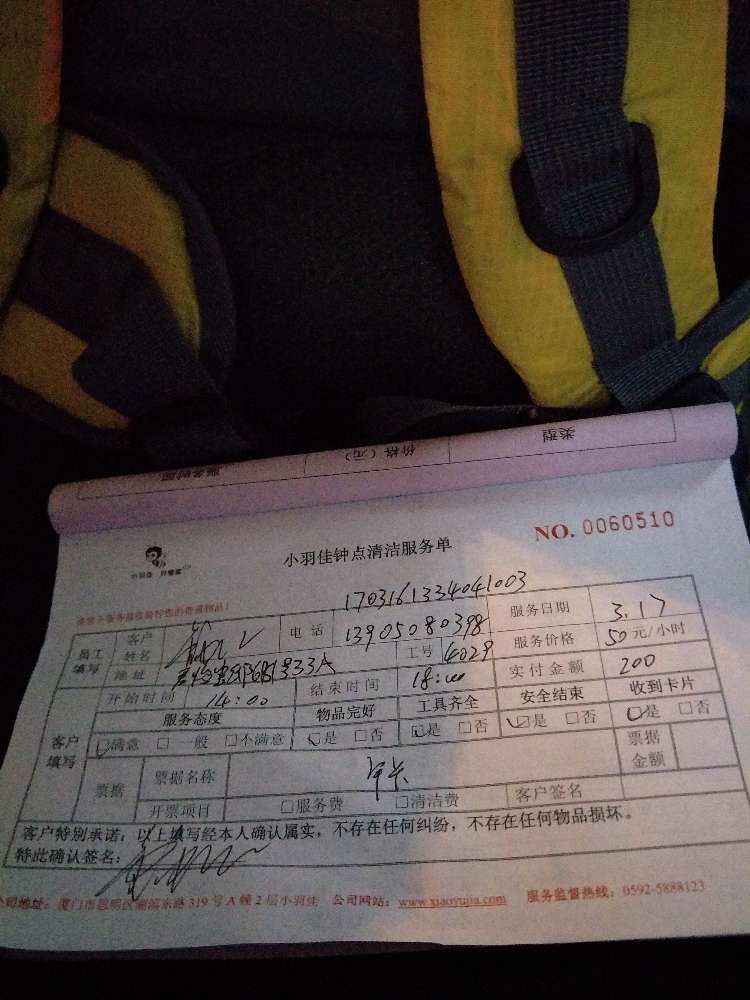 类型
价格（元）
服务时间
NO. 0060510
小羽佳钟点清洁服务单
小羽佳 好管家
1703161334041003
员工填写 客户姓名 电话 13905080398 服务日期 3.17
地址 工号 4029 服务价格 50元/小时
开始时间 14:00 结束时间 18:00 实付金额 200
客户填写 服务态度 物品完好 工具齐全 安全结束 收到卡片
☑满意 □一般 □不满意 ☑是 □否 ☑是 □否 ☑是 □否 ☑是 □否
票据 票据名称 票据金额
开票项目 □服务费 □清洁费 客户签名
客户特别承诺：以上填写经本人确认属实，不存在任何纠纷，不存在任何物品损坏。
特此确认签名：
公司地址：厦门市思明区湖滨东路319号A幢2层小羽佳 公司网站：www.xiaoyujia.com 服务监督热线：0592-5888123